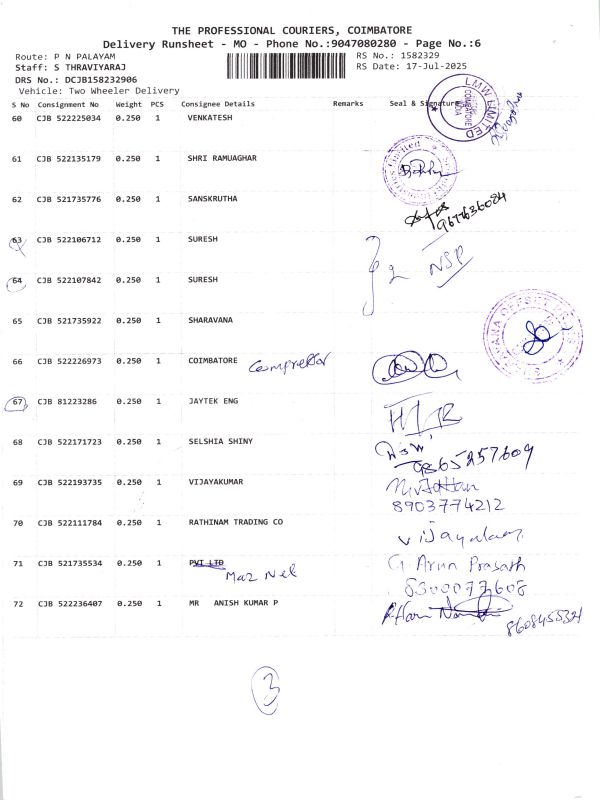 THE PROFESSIONAL COURIERS, COIMBATORE
Delivery Runsheet - MO - Phone No.:9047080280 - Page No.:6
Route: P N PALAYAM RS No.: 1582329
Staff: S THRAVIYARAJ RS Date: 17-Jul-2025
DRS No.: DCJB158232906
Vehicle: Two Wheeler Delivery
S No Consignment No Weight PCS Consignee Details Remarks Seal & Signature
60 CJB 522225034 0.250 1 VENKATESH
LMW LIMITED COIMBATORE INDIA
61 CJB 522135179 0.250 1 SHRI RAMUAGHAR
62 CJB 521735776 0.250 1 SANSKRUTHA
9677636084
63 CJB 522106712 0.250 1 SURESH
2 NSP
64 CJB 522107842 0.250 1 SURESH
65 CJB 521735922 0.250 1 SHARAVANA
66 CJB 522226973 0.250 1 COIMBATORE Compressor
67 CJB 81223286 0.250 1 JAYTEK ENG
68 CJB 522171723 0.250 1 SELSHIA SHINY
9865257609
69 CJB 522193735 0.250 1 VIJAYAKUMAR
8903774212
70 CJB 522111784 0.250 1 RATHINAM TRADING CO
71 CJB 521735534 0.250 1 PVT LTD G Arun Prasath
6300077608
72 CJB 522236407 0.250 1 MR ANISH KUMAR P
8608455321
3